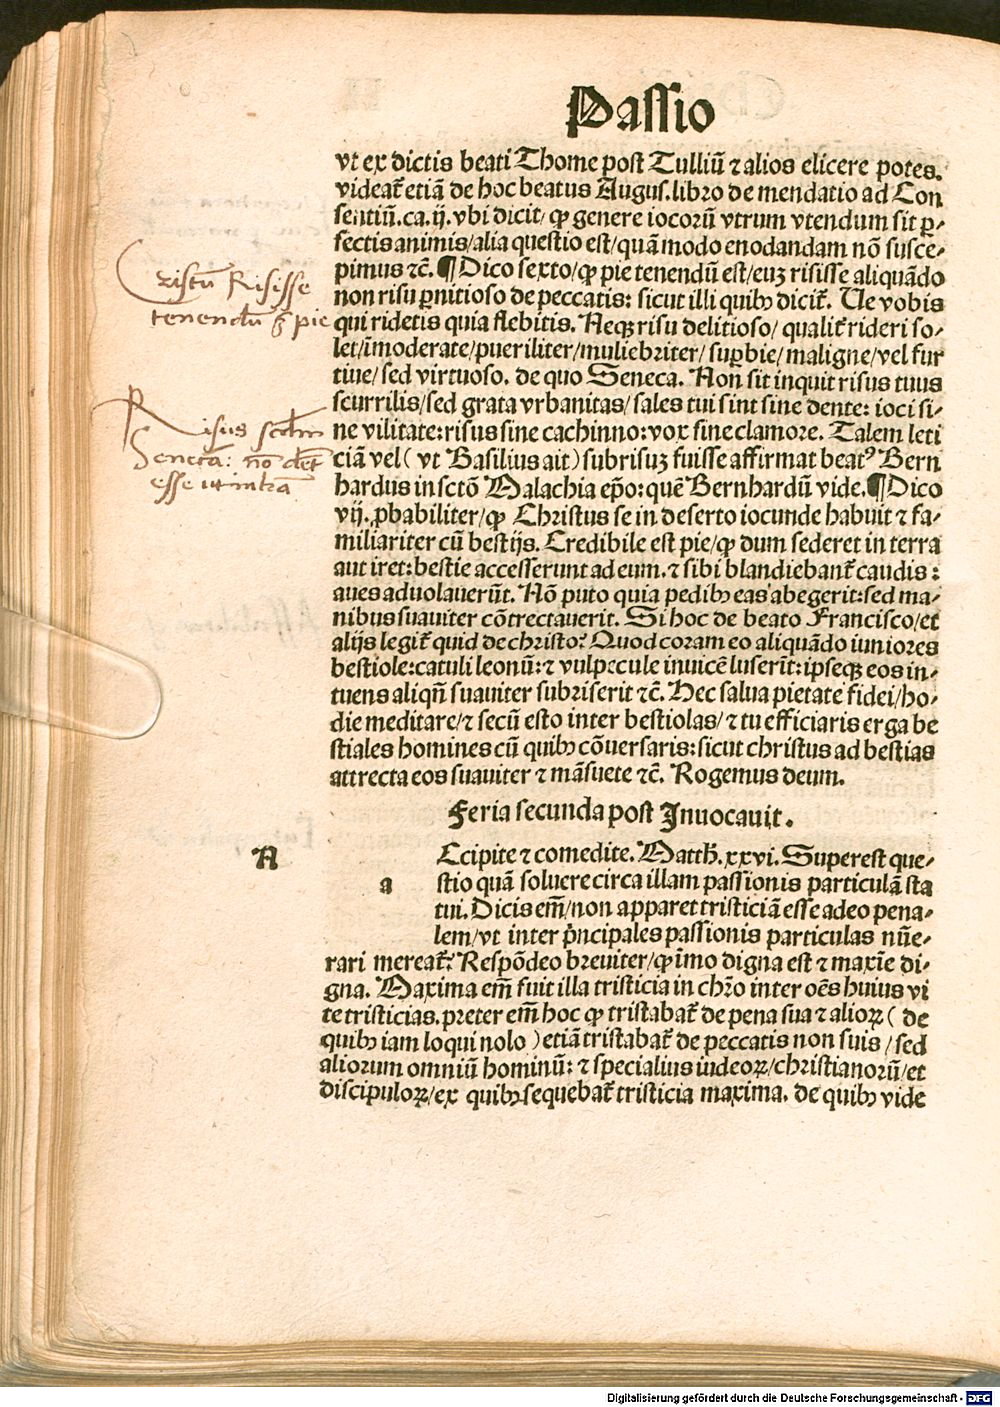 Passio
vt ex dictis beati Thome post Tulliū ⁊ alios elicere potes.
videat᷑ etiā de hoc beatus Augus. libro de mendatio ad Con
sentiū. ca. ij. vbi dicit/ ꝙ genere iocorū vtrum vtendum sit ꝑ-
fectis animis/alia questio est/quā modo enodandam nō susce-
pimus ⁊c̄. ¶ Dico sexto/ꝙ pie tenendū est/euꝫ risisse aliquādo
non risu ꝑnitioso de peccatis: sicut illi quibꝰ dicit᷑. Ue vobis
qui ridetis quia flebitis. Neqꝫ risu delitioso/ qualit᷑ rideri so-
let/īmoderate/pueriliter/muliebriter/ suꝑbie/ maligne/vel fur
tiue/ sed virtuoso. de quo Seneca. Non sit inquit risus tuus
scurrilis/sed grata vrbanitas/ sales tui sint sine dente: ioci si-
ne vilitate: risus sine cachinno: vox sine clamore. Talem leti
ciā vel ( vt Basilius ait ) subrisuꝫ fuisse affirmat beatꝰ Bern
hardus in sctō Malachia ep̄o: quē Bernhardū vide. ¶ Dico
vij. ꝓbabiliter/ꝙ Christus se in deserto iocunde habuit ⁊ fa-
miliariter cū bestijs. Credibile est pie/ꝙ dum sederet in terra
aut iret: bestie accesserunt ad eum. ⁊ sibi blandiebant᷑ caudis:
aues aduolauerūt. Nō puto quia pedibꝰ eas abegerit: sed ma-
nibus suauiter cōtrectauerit. Si hoc de beato Francisco/et
alijs legit᷑ quid de christo? Quod coram eo aliquādo iuniores
bestiole: catuli leonū: ⁊ vulpecule inuicē luserūt: ipseqꝫ eos in-
tuens aliqn̄ suauiter subriserit ⁊c̄. Hec salua pietate fidei/ho-
die meditare/⁊ secū esto inter bestiolas/ ⁊ tu efficiaris erga be
stiales homines cū quibꝰ cōuersaris: sicut christus ad bestias
attrecta eos suauiter ⁊ māsuete ⁊c̄. Rogemus deum.
Cristū Risisse
tenendū ꝙ pie
Risus scdm
Senecā: nō det
esse ut infra
Feria secunda post Inuocauit.
A
a
Ccipite ⁊ comedite. Matth̄. xxvi. Superest que-
stio quā soluere circa illam passionis particulā sta
tui. Dicis em̄/non apparet tristiciā esse adeo pena-
lem/vt inter p̄ncipales passionis particulas nūe-
rari mereat᷑? Respōdeo breuiter/ꝙ īmo digna est ⁊ maxīe di-
gna. Maxima em̄ fuit illa tristicia in chr̄o inter oēs huius vi
te tristicias. preter em̄ hoc ꝙ tristabat᷑ de pena sua ⁊ alioꝝ ( de
quibꝰ iam loqui nolo ) etiā tristabat᷑ de peccatis non suis / sed
aliorum omniū hominū: ⁊ specialius iudeoꝝ/christianorū/et
discipuloꝝ/ex quibꝰ sequebat᷑ tristicia maxima. de quibꝰ vide
Digitalisierung gefördert durch die Deutsche Forschungsgemeinschaft - DFG